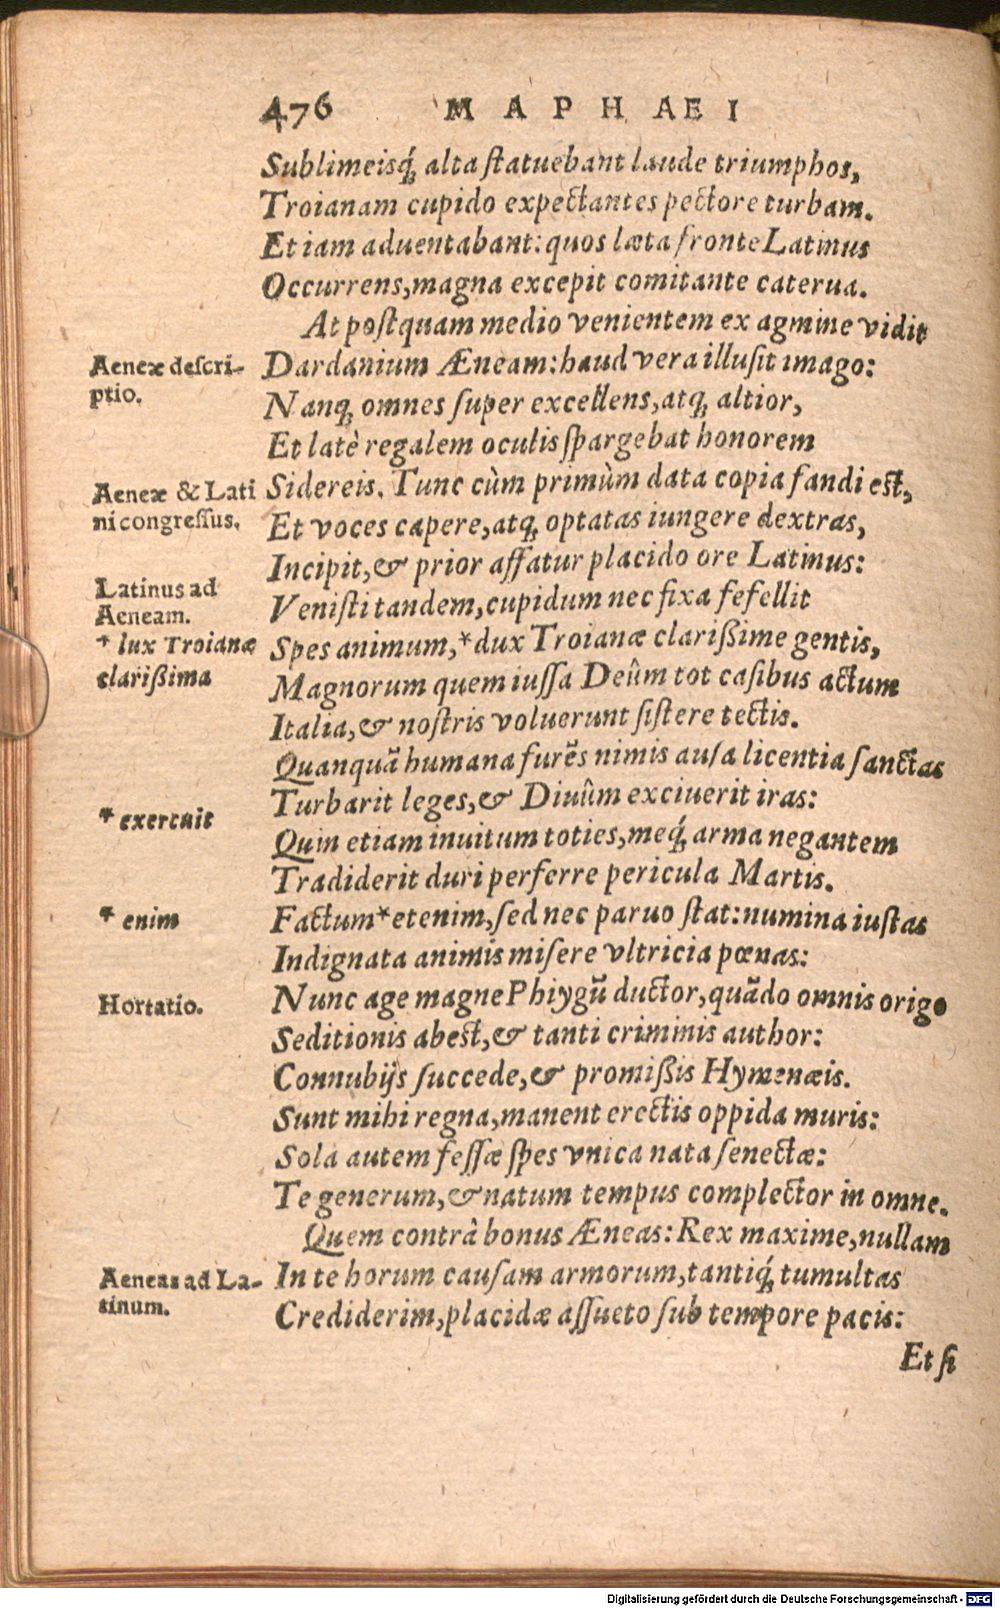 476 MAPHAEI
Sublimeisq́; alta ſtatuebant laude triumphos,
Troianam cupido expectantes pectore turbam.
Et iam aduentabant: quos læta fronte Latinus
Occurrens, magna excepit comitante caterua.
At poſtquam medio venientem ex agmine vidit
Aeneæ deſcri-
ptio.
Dardanium Æneam: haud vera illuſit imago:
Nanq; omnes ſuper excellens, atq; altior,
Et latè regalem oculis ſpargebat honorem
Aeneæ & Lati
ni congreſſus.
Sidereis. Tunc cùm primùm data copia fandi eſt,
Et voces capere, atq; optatas iungere dextras,
Incipit, & prior affatur placido ore Latinus:
Latinus ad
Aeneam.
Veniſti tandem, cupidum nec fixa fefellit
* lux Troianæ
clarißima
Spes animum, * dux Troianæ clarißime gentis,
Magnorum quem iuſſa Deûm tot caſibus actum
Italia, & noſtris voluerunt ſiſtere tectis.
Quanquā humana furēs nimis auſa licentia ſanctas
Turbarit leges, & Diuûm exciuerit iras:
* exercuit
Quin etiam inuitum toties, meq́; arma negantem
Tradiderit duri perferre pericula Martis.
* enim
Factum * etenim, ſed nec paruo ſtat: numina iuſtas
Indignata animis miſere vltricia pœnas:
Hortatio.
Nunc age magne Phiygū ductor, quādo omnis origo
Seditionis abeſt, & tanti criminis author:
Connubijs ſuccede, & promißis Hymenæis.
Sunt mihi regna, manent erectis oppida muris:
Sola autem feſſæ ſpes vnica nata ſenectæ:
Te generum, & natum tempus complector in omne.
Quem contrà bonus Æneas: Rex maxime, nullam
Aeneas ad La-
tinum.
In te horum cauſam armorum, tantiq́; tumultas
Crediderim, placidæ aſſueto ſub tempore pacis:
Et ſi
Digitalisierung gefördert durch die Deutsche Forschungsgemeinschaft - DFG